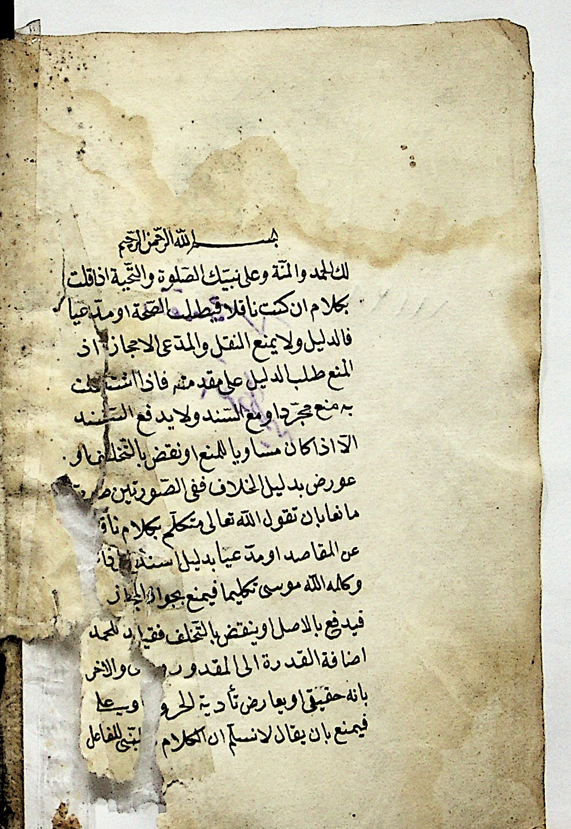 بسم الله الرحمن الرحيم
لك الحمد والمنة وعلى نبيك الصلوة والتحية اذا قلت
بكلام ان كنت ناقلا فيطلب الصحة او مدعيا
فالدليل ولا يمنع النقل والمدعى الا مجازا اذ
المنع طلب الدليل على مقدمته فاذا اشتغلت
به منع مجردا او مع السند ولا يدفع السند
الا اذا كان مساويا للمنع او نقض بالتخلف او
عورض بدليل الخلاف ففى الصورتين صرت
مانعا بان تقول الله تعالى متكلم بكلام
عن المقاصد او مدعيا بدليل اسند
وكلم الله موسى تكليما فيمنع بجواز المجاز
فيدفع بالاصل او ينقض بالتخلف فقيل
اضافة القدرة الى المقدور والاخر
بانه حقيقى او يعارض تأدية
فيمنع بان يقال لا نسلم ان الكلام للفاعل